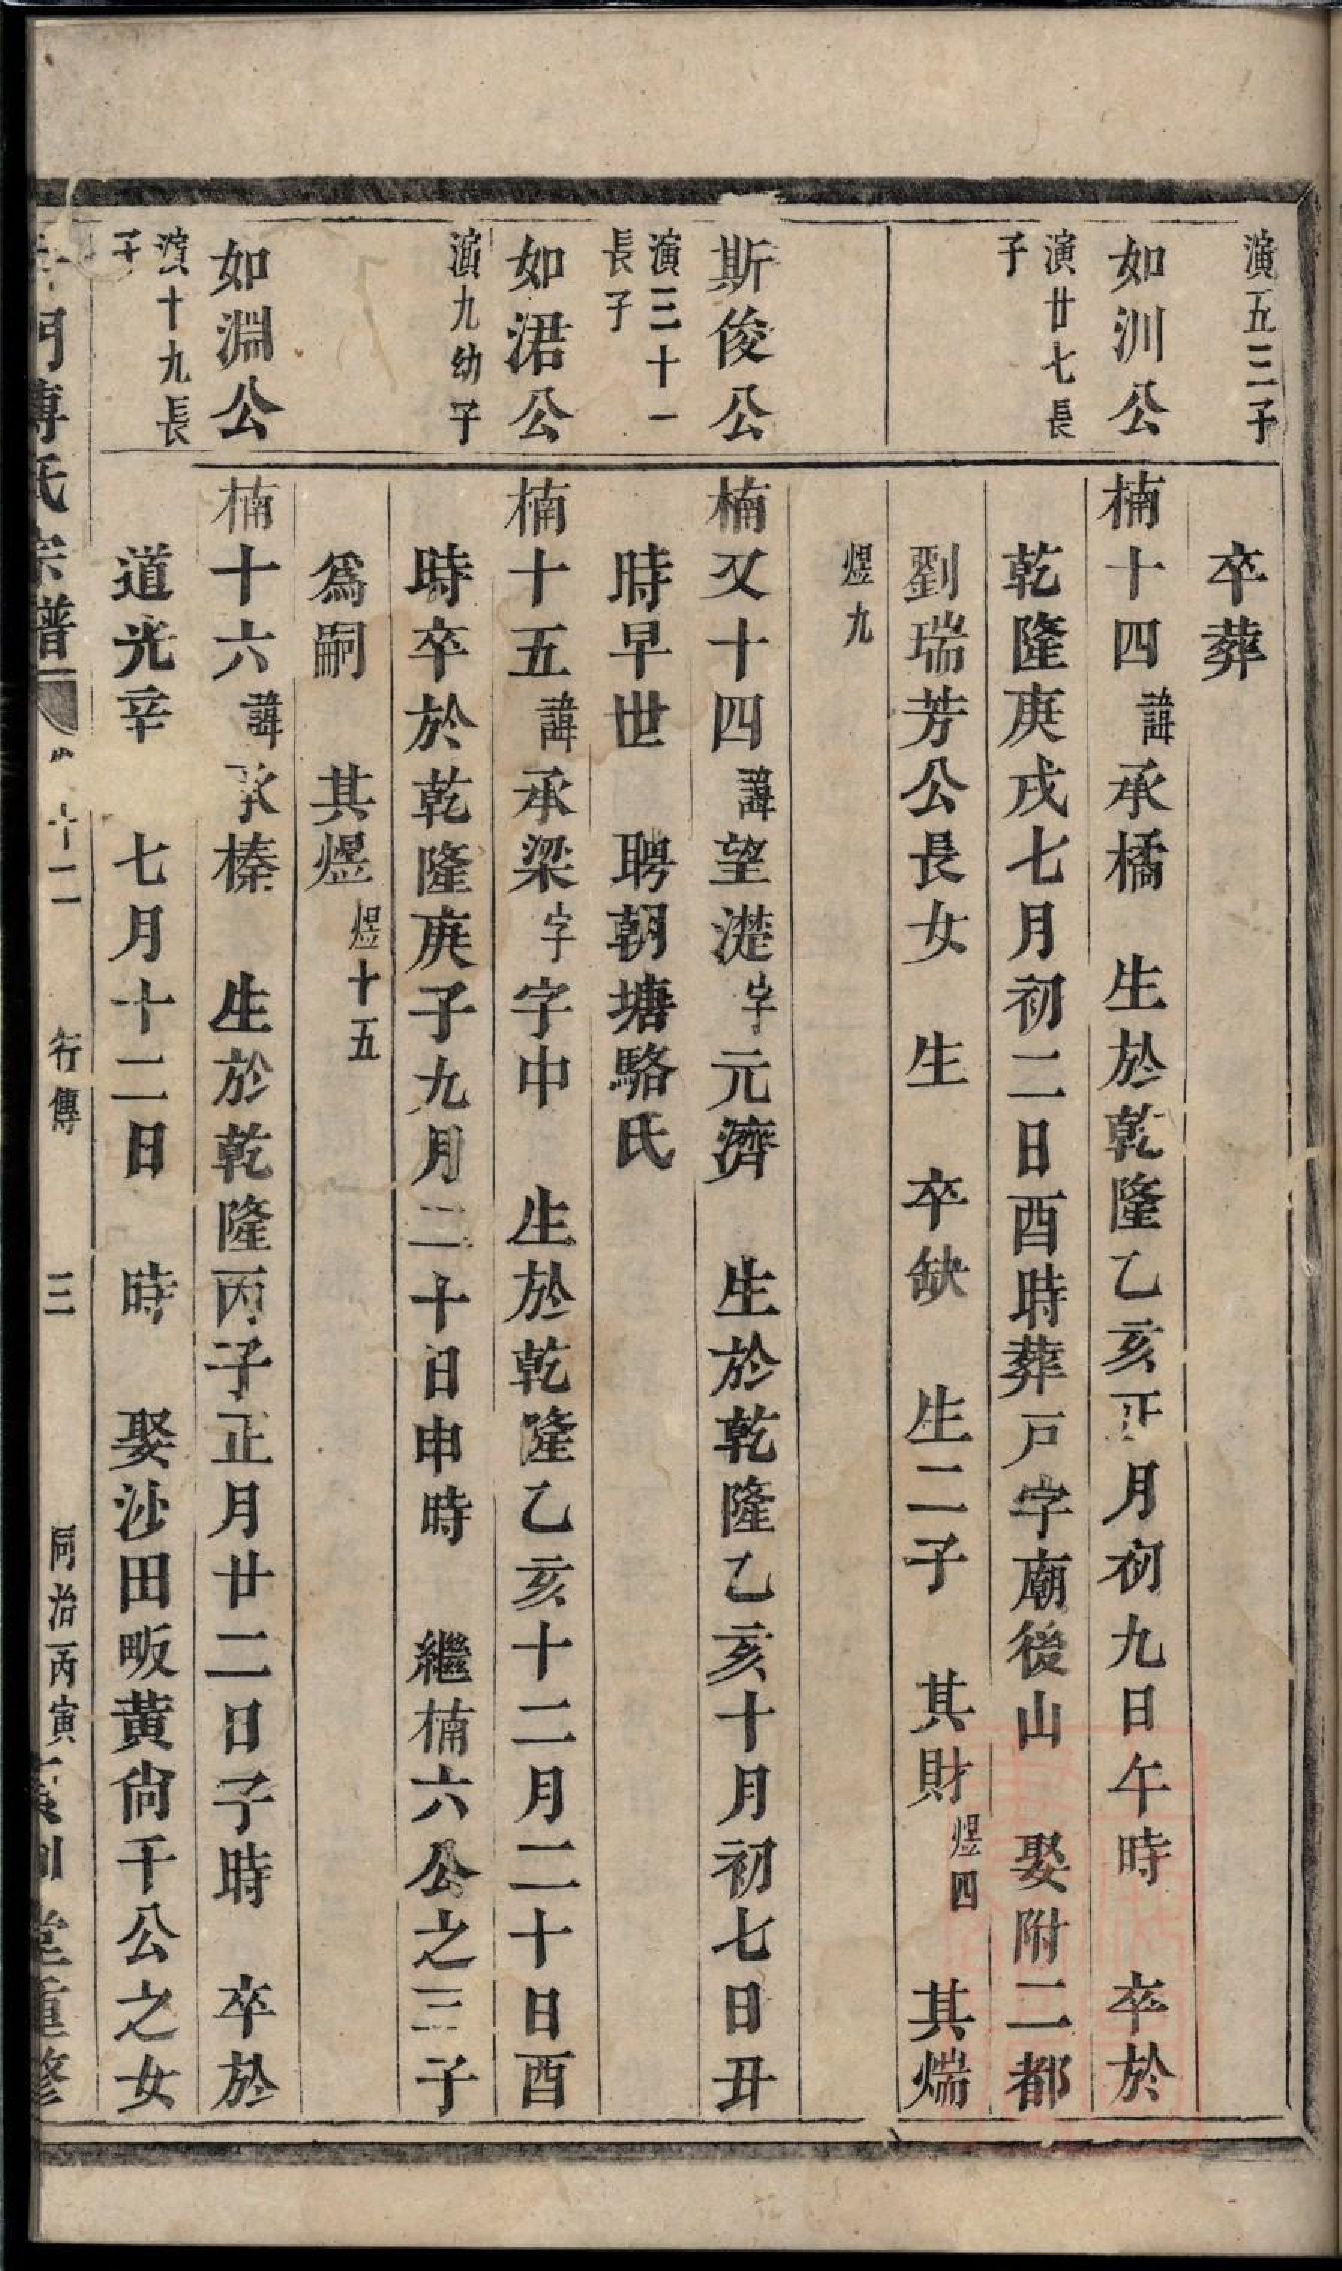 演五三子
卒葬
如汌公
楠十四諱承橘　生於乾隆乙亥正月初九日午時　卒於
演廿七長
子
乾隆庚戌七月初二日酉時葬戸字廟後山　娶附二都
劉瑞芳公長女　生　卒缺　生二子　其財煜四　其煓
煜九
斯俊公
楠又十四諱望濋字元濟　生於乾隆乙亥十月初七日丑
演三十一
長子
時早世　聘朝塘駱氏
如涒公
楠十五諱承梁字字中　生於乾隆乙亥十二月二十日酉
演九幼子
時卒於乾隆庚子九月二十日申時　繼楠六公之三子
爲嗣　其煜煜十五
如淵公
楠十六諱承榛　生於乾隆丙子正月廿二日子時　卒於
演十九長
子
道光辛　七月十二日　時　娶沙田畈黃尙千公之女
門傅氏宗譜　十二　行傳　三　同治丙寅　堂重修